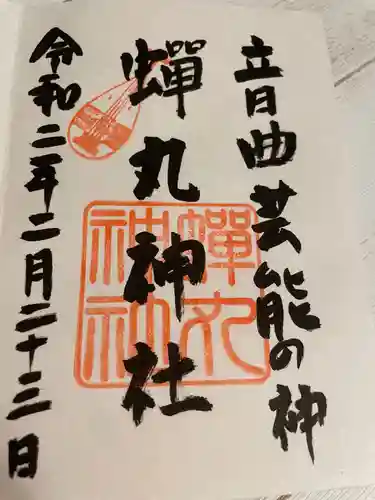 音曲芸能の神
蝉丸神社
令和二年二月二十三日
蝉丸
神社